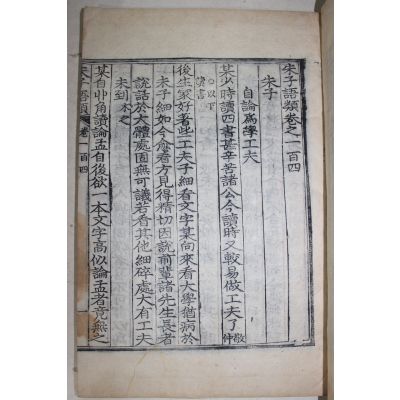 朱子語類卷之一百四
朱子
自論爲學工夫
某少時讀四書甚辛苦諸公今讀時又較易做工夫了敬仲
以下讀書
後生家好著些工夫子細看文字某向來看大學猶病於
未子細如今愈看方見得精切因說前輩諸先生長者
說話於大體處固無可議若看其他細碎處大有工夫
未到木之
某自丱角讀論孟自後欲一本文字高似論孟者竟無之
朱子語類 卷一百四